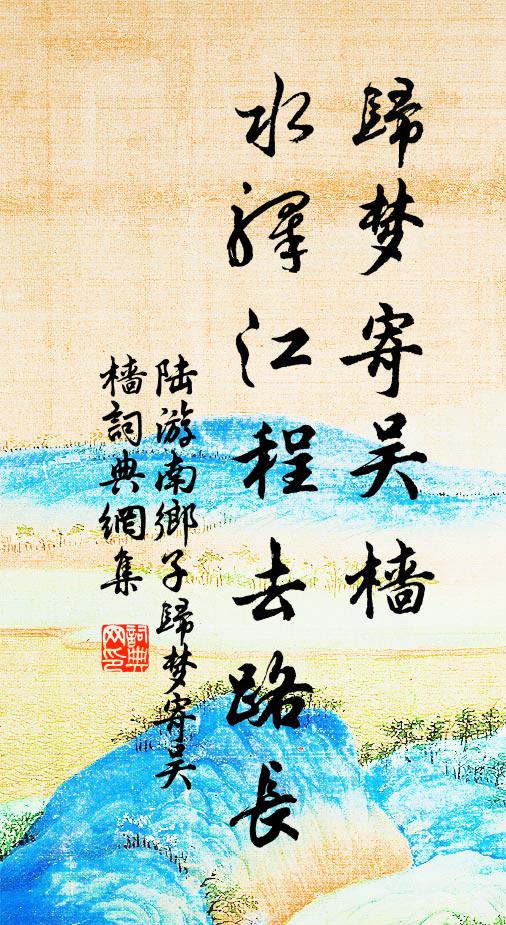 歸梦寄吴檣
水驿江程去路長
陆游南鄉子歸梦寄吴
檣詞典網集
詞典
网印